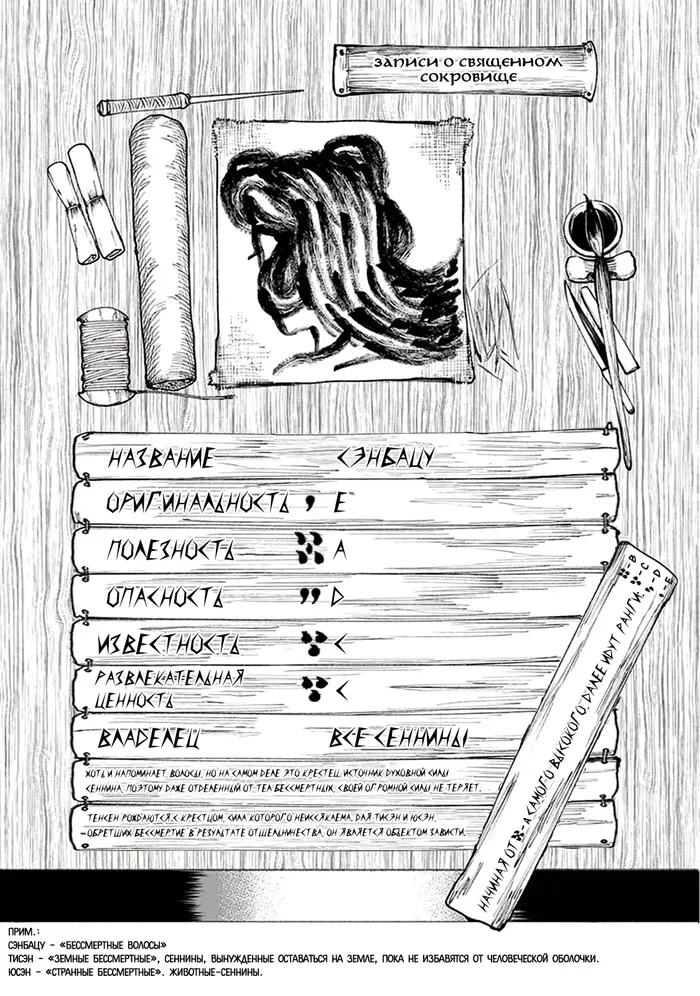 ЗАПИСИ О СВЯЩЕННОМ
СОКРОВИЩЕ
НАЗВАНИЕ СЭНБАЦУ
ОРИГИНАЛЬНОСТЬ E
ПОЛЕЗНОСТЬ A
ОПАСНОСТЬ D
ИЗВЕСТНОСТЬ C
РАЗВЛЕКАТЕЛЬНАЯ
ЦЕННОСТЬ C
ВЛАДЕЛЕЦ ВСЕ СЕННИНЫ
ХОТЬ И НАПОМИНАЕТ ВОЛОСЫ, НО НА САМОМ ДЕЛЕ ЭТО КРЕСТЕЦ, ИСТОЧНИК ДУХОВНОЙ СИЛЫ
СЕННИНА, ПОЭТОМУ ДАЖЕ ОТДЕЛЕННЫЙ ОТ ТЕЛ БЕССМЕРТНЫХ, СВОЕЙ ОГРОМНОЙ СИЛЫ НЕ ТЕРЯЕТ.
ТЕНСЕН РОЖДАЮТСЯ С КРЕСТЦОМ, СИЛА КОТОРОГО НЕИССЯКАЕМА. ДЛЯ ТИСЭН И ЮСЭН,
–ОБРЕТШИХ БЕССМЕРТИЕ В РЕЗУЛЬТАТЕ ОТШЕЛЬНИЧЕСТВА, ОН ЯВЛЯЕТСЯ ОБЪЕКТОМ ЗАВИСТИ.
НАЧИНАЯ ОТ -A САМОГО ВЫСОКОГО, ДАЛЕЕ ИДУТ РАНГИ:
-B
-C
-D
-E
ПРИМ.:
СЭНБАЦУ – «БЕССМЕРТНЫЕ ВОЛОСЫ»
ТИСЭН – «ЗЕМНЫЕ БЕССМЕРТНЫЕ», СЕННИНЫ, ВЫНУЖДЕННЫЕ ОСТАВАТЬСЯ НА ЗЕМЛЕ, ПОКА НЕ ИЗБАВЯТСЯ ОТ ЧЕЛОВЕЧЕСКОЙ ОБОЛОЧКИ.
ЮСЭН – «СТРАННЫЕ БЕССМЕРТНЫЕ». ЖИВОТНЫЕ-СЕННИНЫ.